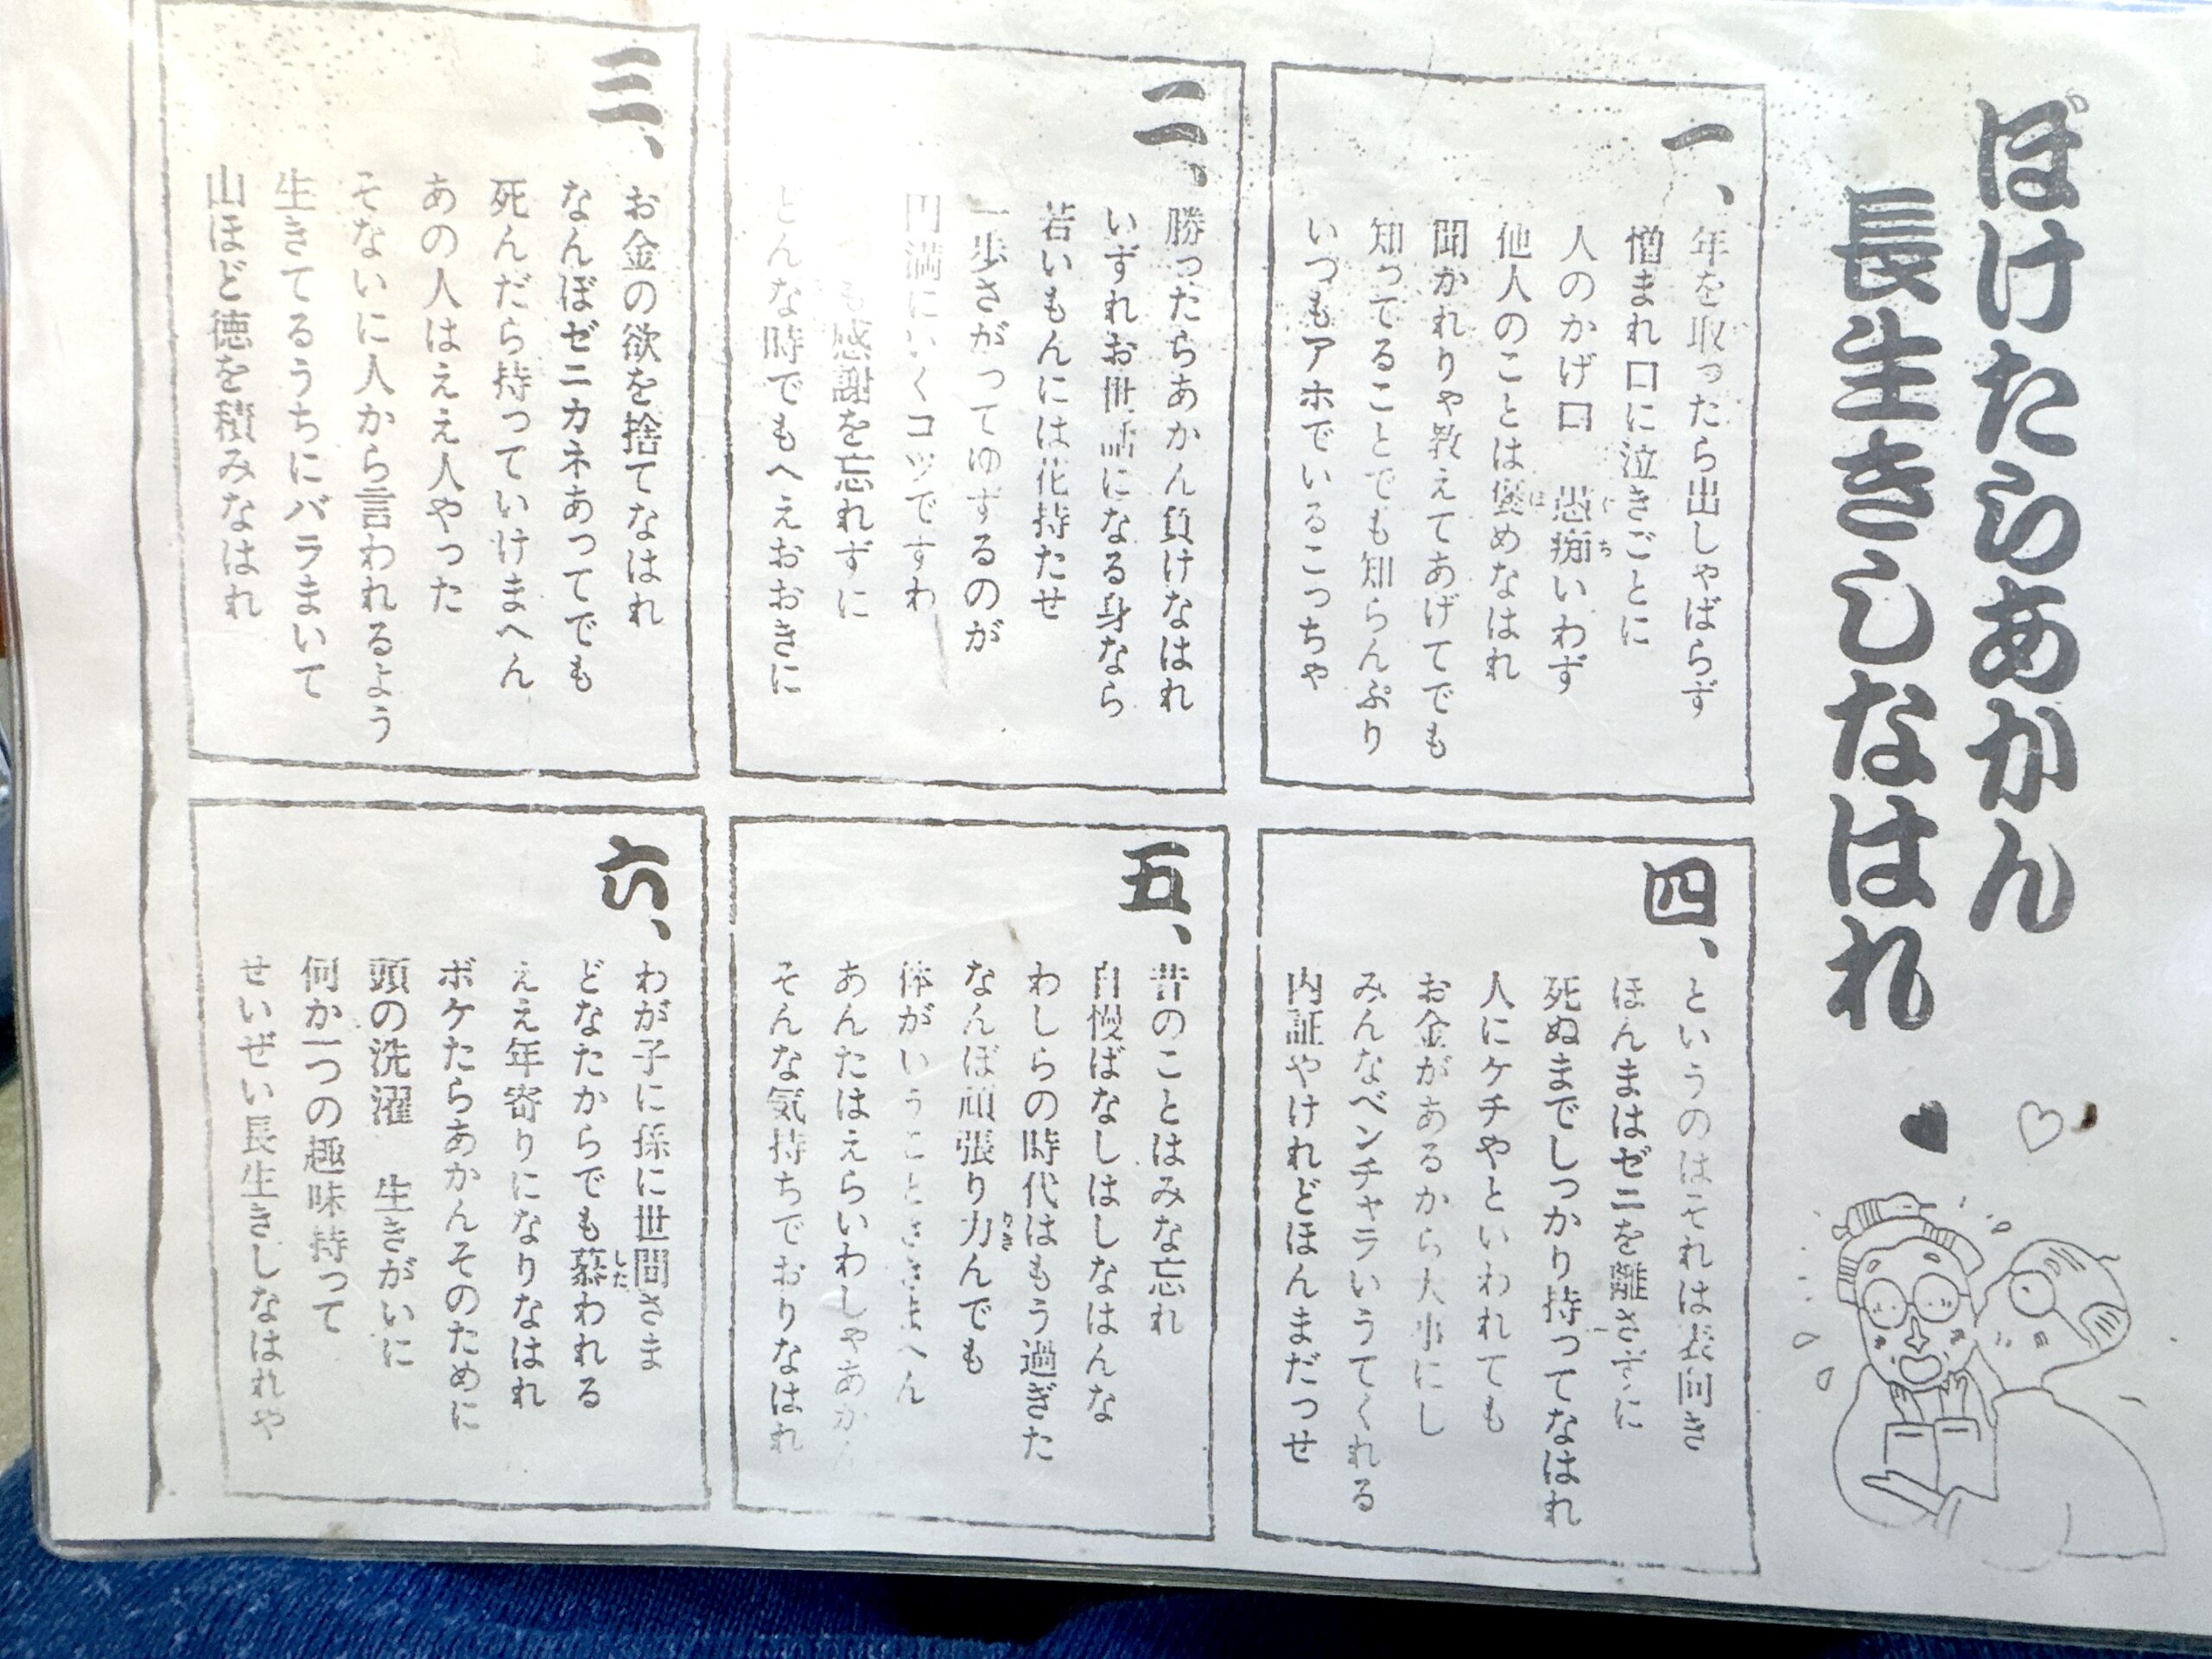 ぼけたらあかん
長生きしなはれ
一、
年を取ったら出しゃばらず
憎まれ口に泣きごとに
人のかげ口 愚痴いわず
ぐち
他人のことは褒めなはれ
ほ
聞かれりゃ教えてあげてでも
知ってることでも知らんぷり
いつもアホでいるこっちゃ
二、
勝ったらあかん負けなはれ
いずれお世話になる身なら
若いもんには花持たせ
一歩さがってゆずるのが
円満にいくコツですわ
も感謝を忘れずに
どんな時でもへえおおきに
三、
お金の欲を捨てなはれ
なんぼゼニカネあってでも
死んだら持っていけまへん
あの人はええ人やった
そないに人から言われるよう
生きてるうちにバラまいて
山ほど徳を積みなはれ
四、
というのはそれは表向き
ほんまはゼニを離さずに
死ぬまでしっかり持ってなはれ
人にケチやといわれても
お金があるから大事にし
みんなベンチャラいうてくれる
内証やけれどほんまだっせ
五、
昔のことはみな忘れ
自慢ばなしはしなはんな
わしらの時代はもう過ぎた
なんぼ頑張り力んでも
りき
体がいうこときまへん
あんたはえらいわしゃあかん
そんな気持ちでおりなはれ
六、
わが子に孫に世間さま
どなたからでも慕われる
した
ええ年寄りになりなはれ
ボケたらあかんそのために
頭の洗濯 生きがいに
何か一つの趣味持って
せいぜい長生きしなはれや